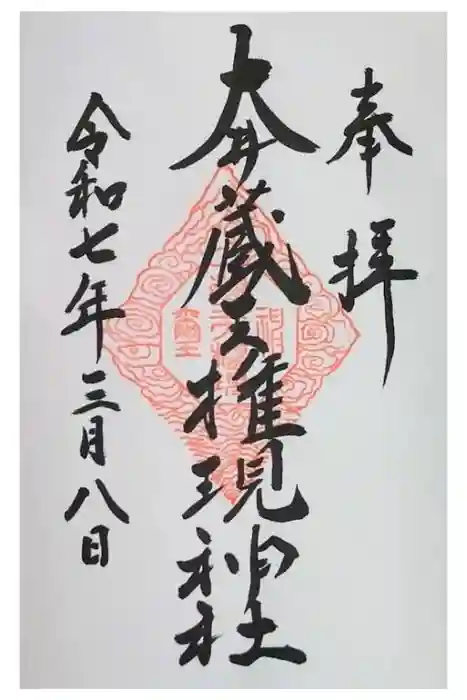 奉拝
大井蔵王権現神社
令和七年三月八日